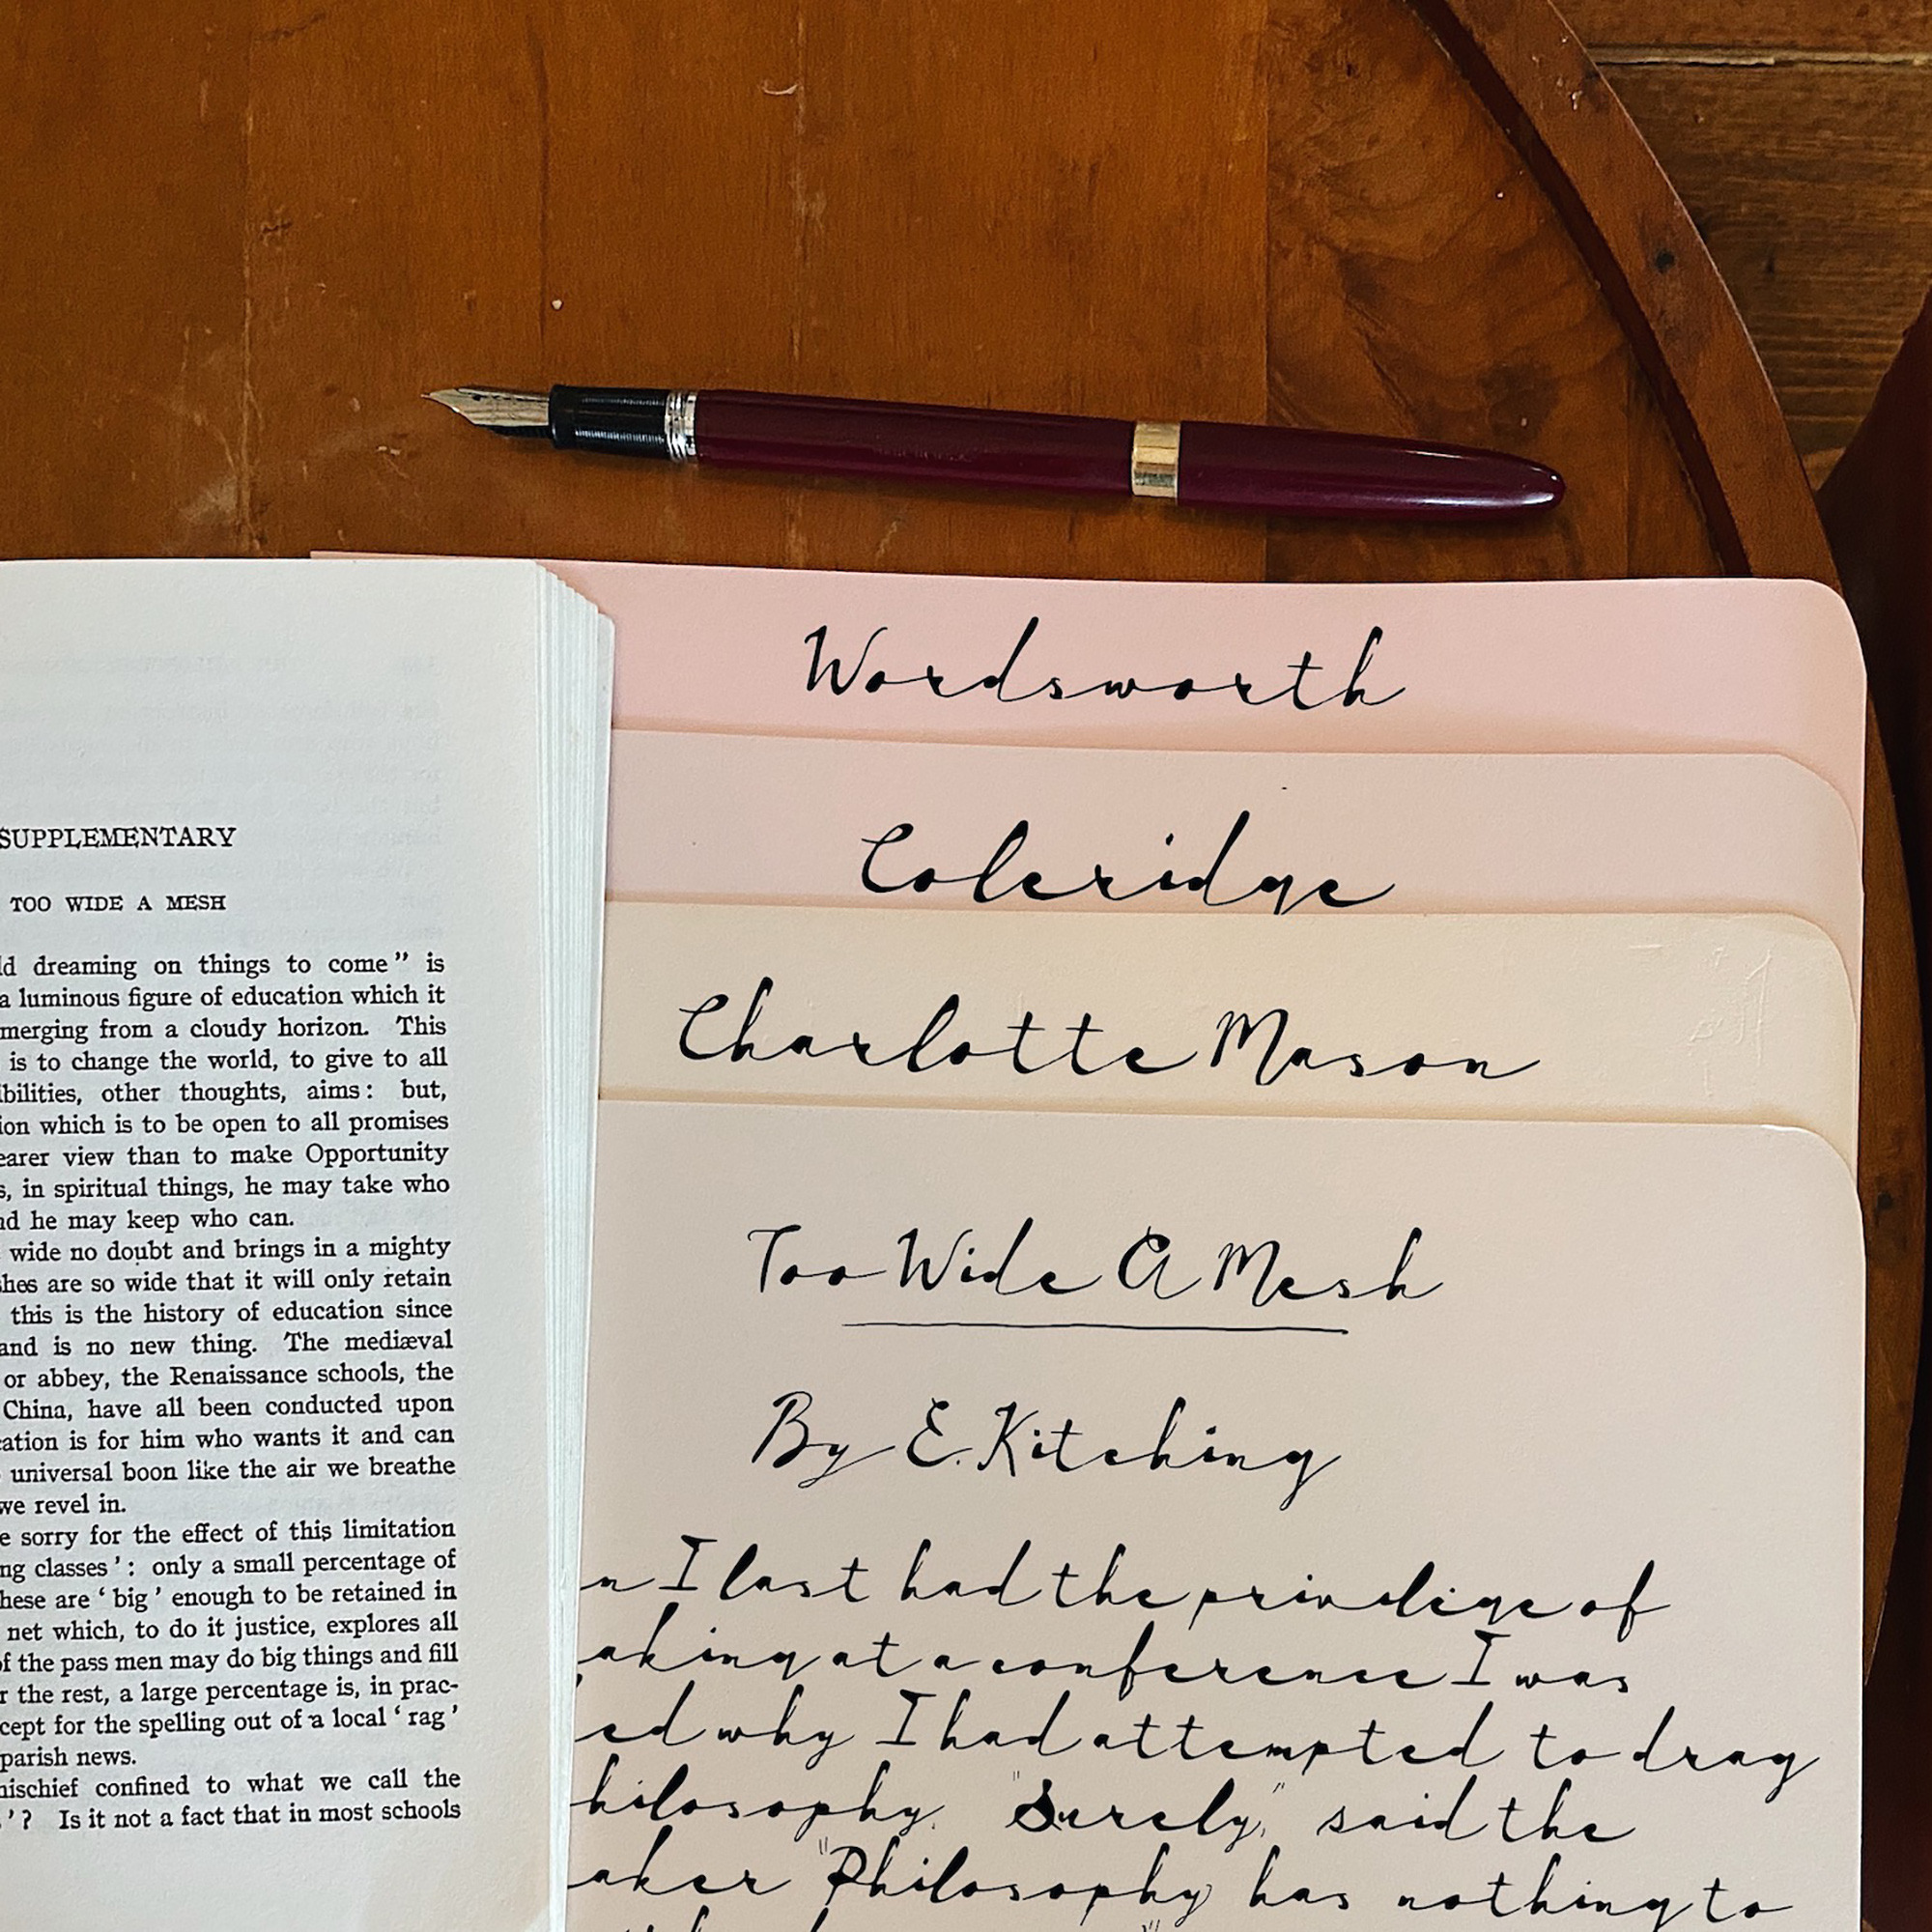 SUPPLEMENTARY
TOO WIDE A MESH
dreaming on things to come" is
a luminous figure of education which it
merging from a cloudy horizon. This
is to change the world, to give to all
ibilities, other thoughts, aims: but,
ion which is to be open to all promises
earer view than to make Opportunity
s, in spiritual things, he may take who
nd he may keep who can.
wide no doubt and brings in a mighty
shes are so wide that it will only retain
this is the history of education since
and is no new thing. The mediæval
or abbey, the Renaissance schools, the
China, have all been conducted upon
cation is for him who wants it and can
universal boon like the air we breathe
we revel in.
e sorry for the effect of this limitation
ng classes': only a small percentage of
hese are 'big' enough to be retained in
net which, to do it justice, explores all
of the pass men may do big things and fill
r the rest, a large percentage is, in prac-
cept for the spelling out of a local 'rag'
parish news.
mischief confined to what we call the
'? Is it not a fact that in most schools
Wordsworth
Coleridge
Charlotte Mason
Too Wide A Mesh
By E. Kitching
n I last had the privilige of
aking at a conference I was
ed why I had attempted to drag
hilosophy. "Surely," said the
aker "Philosophy has nothing to